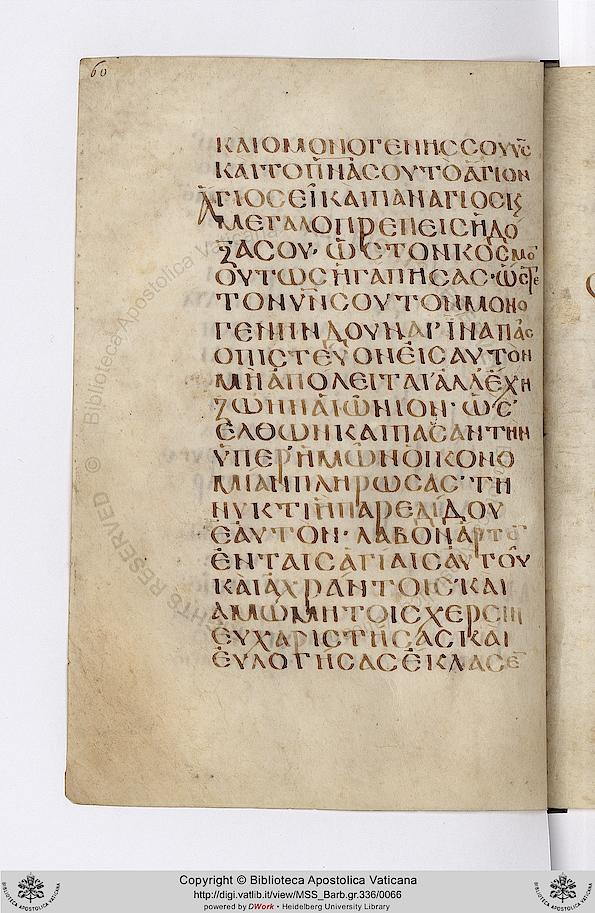 60
ΚΑΙ Ο ΜΟΝΟΓΕΝΗC COY ΥC
ΚΑΙ ΤΟ ΠΝΑ COY ΤΟ ΑΓΙΟΝ
ΑΓΙΟC ΕΙ ΚΑΙ ΠΑΝΑΓΙΟC Κ
ΜΕΓΑΛΟΠΡΕΠΕΙC Η ΔΟ
ΞΑ COY· ΩC ΤΟΝ ΚΟCΜΟ
ΟΥΤΩC ΗΓΑΠΗCΑC· ΩCΤΕ
ΤΟΝ ΥΝ COY ΤΟΝ ΜΟΝΟ
ΓΕΝΗΝ ΔΟΥΝΑΙ· ΙΝΑ ΠΑC
Ο ΠΙCΤΕΥΟΝ ΕΙC ΑΥΤΟΝ
ΜΗ ΑΠΟΛΕΙΤΑΙ ΑΛΛ ΕΧΗ
ΖΩΗΝ ΑΙΩΝΙΟΝ· ΩC
ΕΛΘΩΝ ΚΑΙ ΠΑCΑΝ ΤΗΝ
ΥΠΕΡ ΗΜΩΝ ΟΙΚΟΝΟ
ΜΙΑΝ ΠΛΗΡΩCΑC· ΤΗ
ΝΥΚΤΙ Η ΠΑΡΕΔΙΔΟΥ
ΕΑΥΤΟΝ· ΛΑΒΟΝ ΑΡΤΟ
ΕΝ ΤΑΙC ΑΓΙΑΙC ΑΥΤΟΥ
ΚΑΙ ΑΧΡΑΝΤΟΙC· ΚΑΙ
ΑΜΩΜΗΤΟΙC ΧΕΡCΙΝ
ΕΥΧΑΡΙCΤΗCΑC ΚΑΙ
ΕΥΛΟΓΗCΑC ΕΚΛΑCΕ
Biblioteca Apostolica Vaticana ©
RIGHTS RESERVED ©
Copyright © Biblioteca Apostolica Vaticana
http://digi.vatlib.it/view/MSS_Barb.gr.336/0066
powered by DWork • Heidelberg University Library